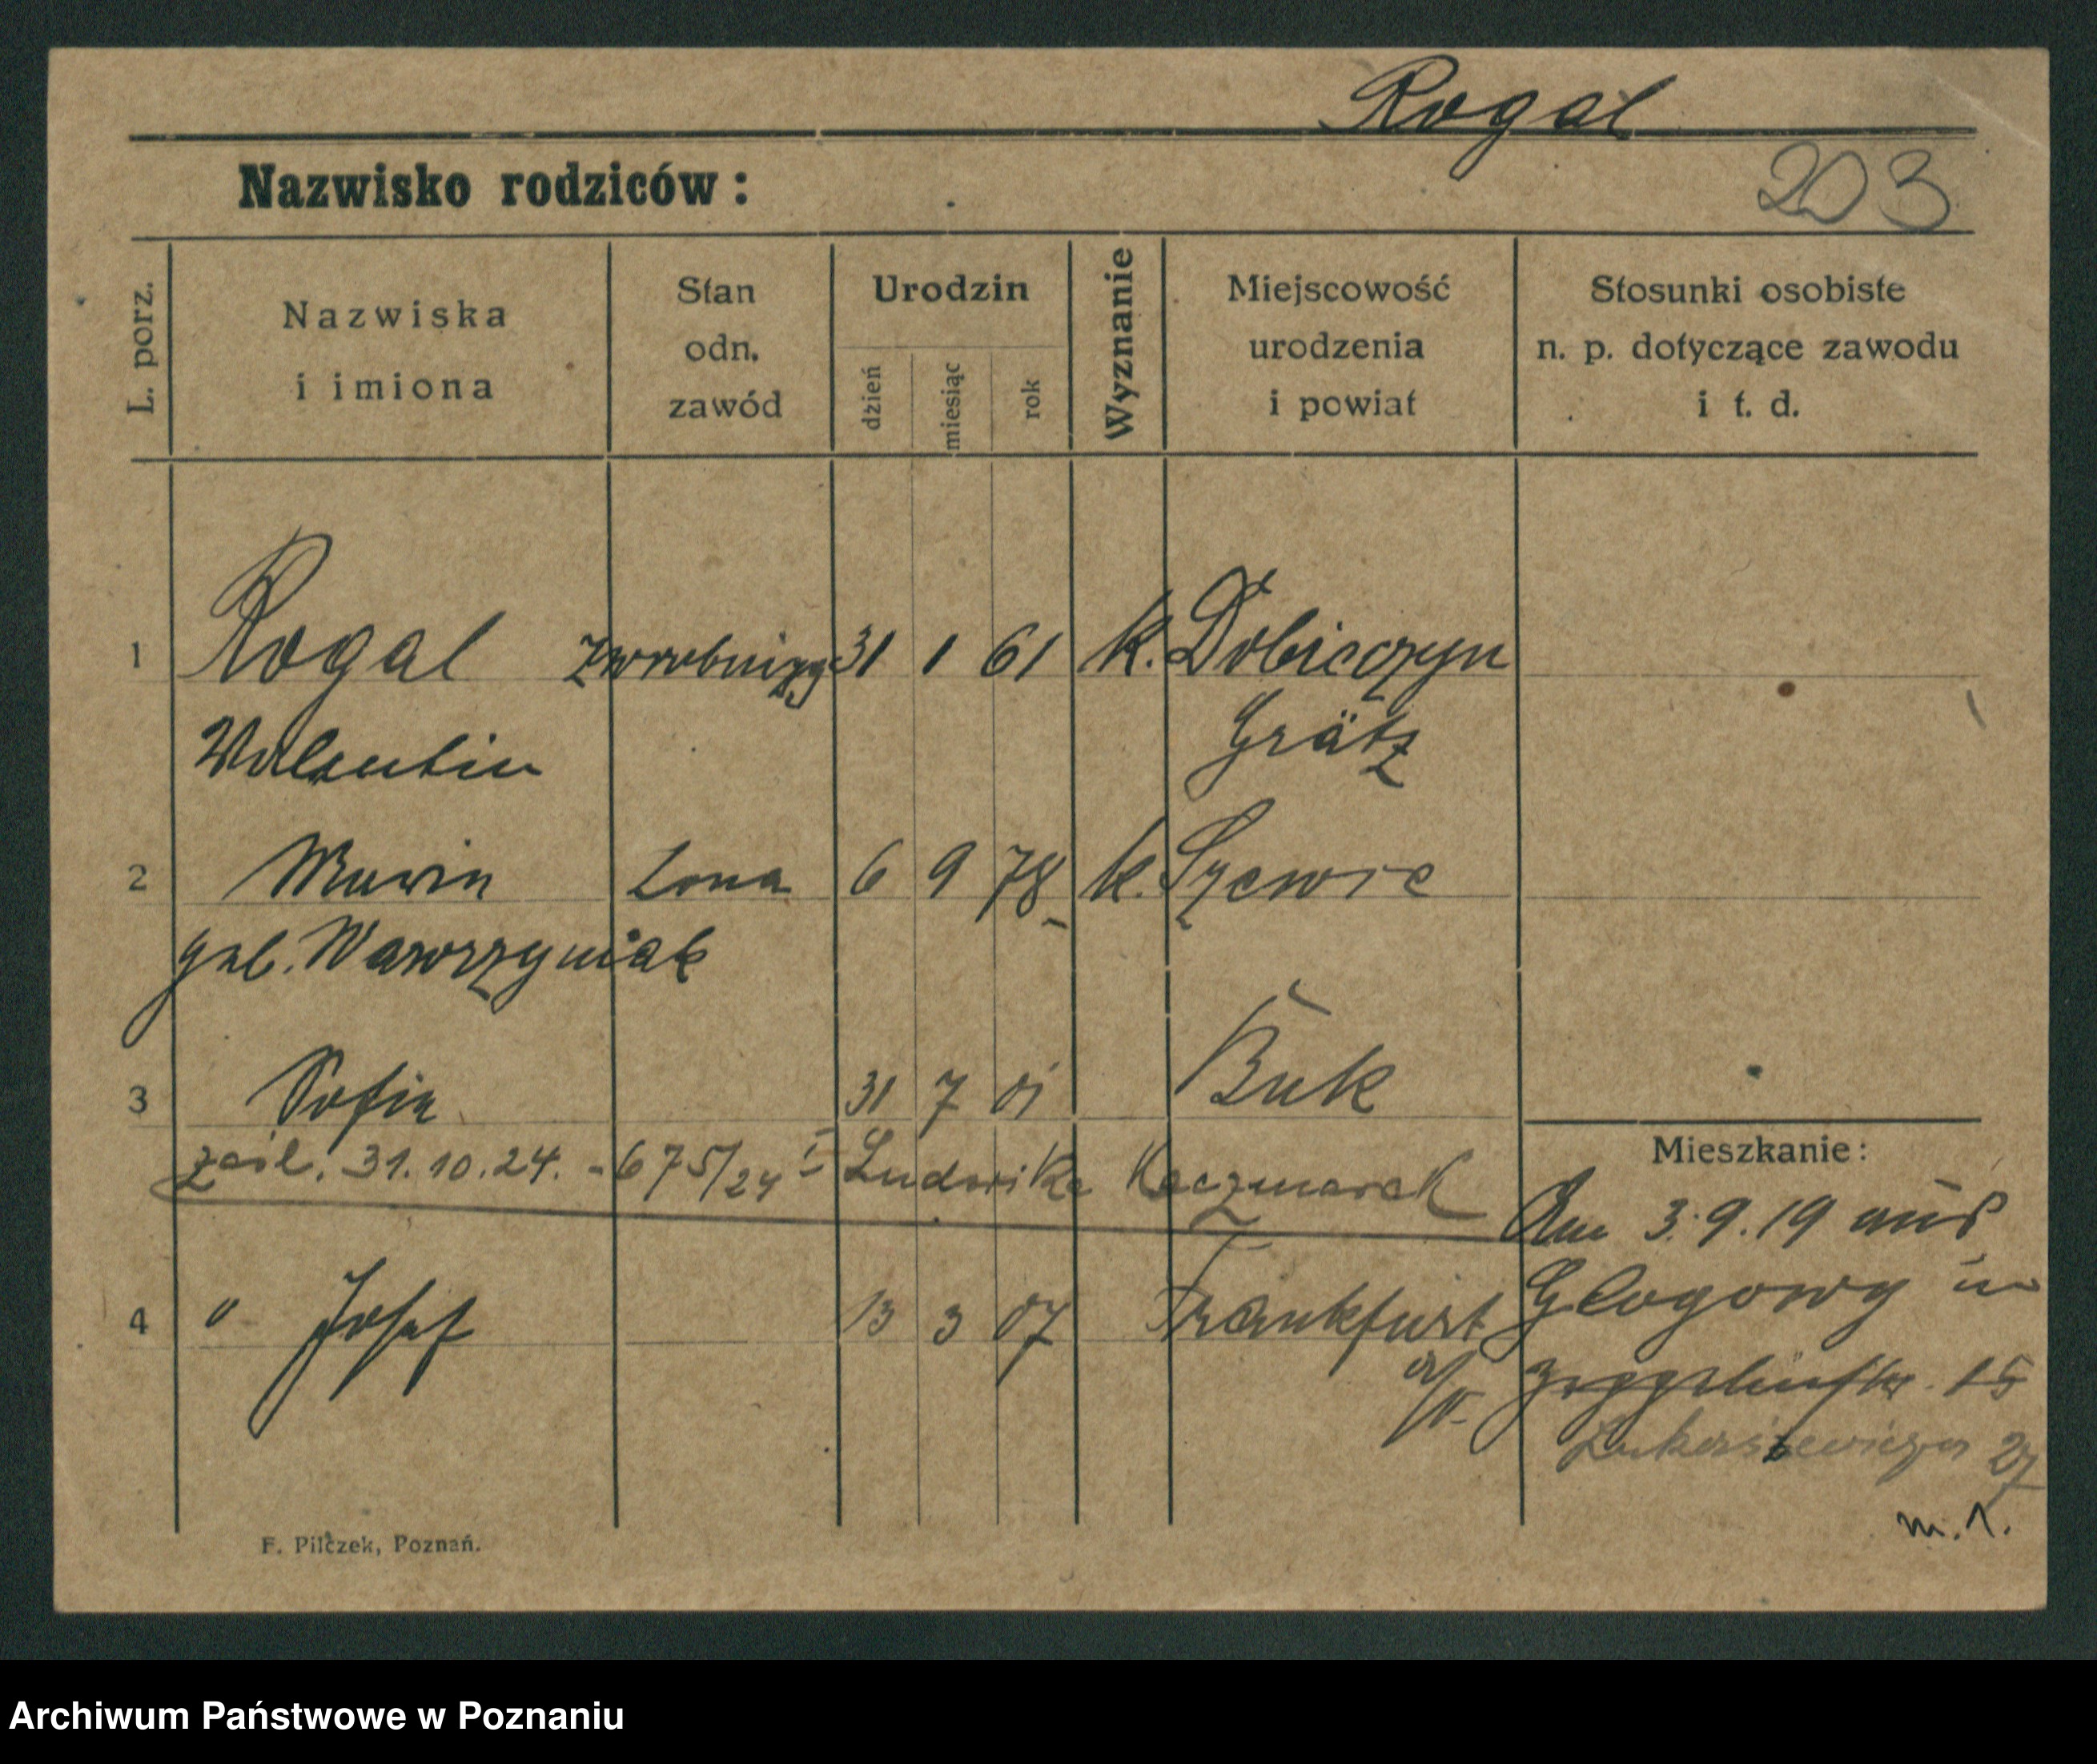 Rogal
Nazwisko rodziców :
203
L. porz.
Nazwiska
i imiona
Stan
odn.
zawód
Urodzin
dzień
miesiąc
rok
Wyznanie
Miejscowość
urodzenia
i powiat
Stosunki osobiste
n. p. dotyczące zawodu
i t. d.
1 Rogal 31 1 61 k. Dobieczyn
Valentin Grätz
2 Maria żona 6 9 78 k. Szewce
geb. Wawrzyniak
3 Sofia 31 7 01 Buk
zaśl. 31.10.24. - 675/24 I Ludwika Kaczmarek
Mieszkanie :
Am 3.9.19 aus
4 " Josef 13 3 07 Frankfurt
a/O.
Glogowy in
15
Łukaszewicza 27
m. 1.
F. Pilczek, Poznań.
Archiwum Państwowe w Poznaniu